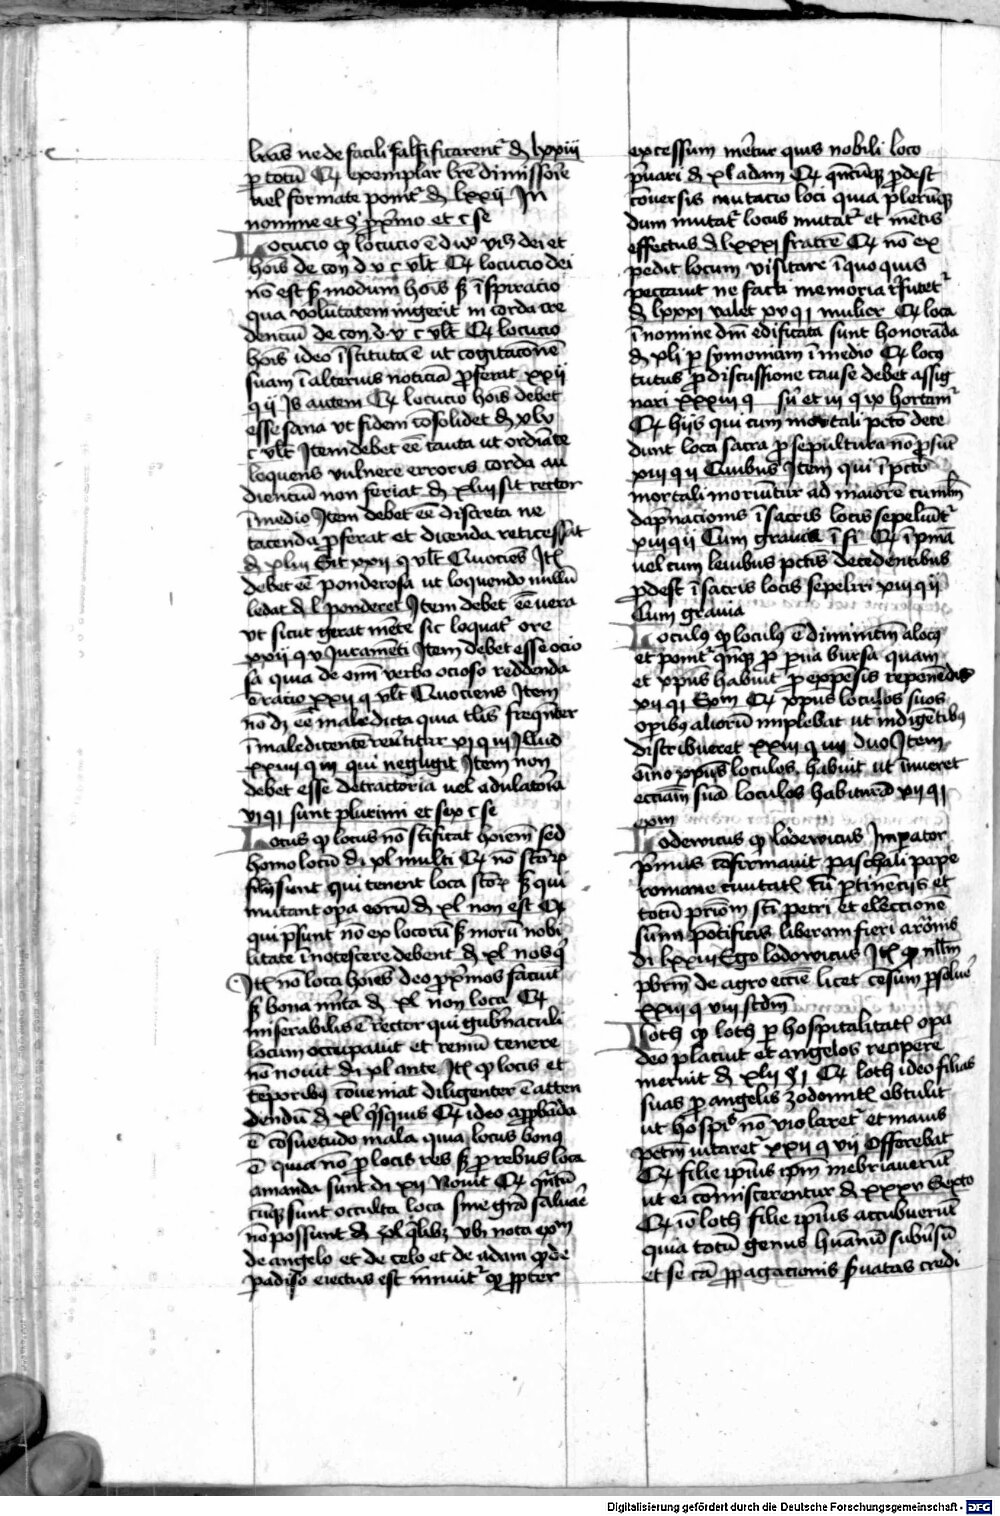 lr̄as ne de facili falsificarent᷑ d̄ lxxiii
ꝑ totū Et exemplar lr̄e dimissorie
vel formate ponit᷑ d̄ lxxii In
nomine et § ꝓximo et c se
Locucio ꝙ locucio ē
hoīs de con d v c vlt Et locucio dei
nō est modum hoīs īspiracio
qua volūtatem ingerit in corda cre
denciū de con d v c vlt Et locucio
hoīs ideo īstituta ē ut cogitacōnē
suam ī alterius noticiā ꝓferat xxii
q ii Is autem Et locucio hoīs debet
esse sana vt fidem cōsolidet d̄ xlv
c vlt Item debet eē cauta ut ordiate
loquens vulnere erroris corda au
dienciū non feriat d̄ xliii sit rector
ī medio Item debet eē discreta ne
tacenda ꝓferat et dicenda reticesscat
d̄ xliii Sit xxii q vlt Quociens Itē
debet eē ponderosa ut loquendo nullū
ledat d̄ l ponderet Item debet eē vera
vt sicut gerat mēte sic loquat᷑ ore
xxii q v Juramēti Item debet esse ocio
sa quia de omī verbo ocioso reddenda
ē racio xxii q vlt Quociens Item
nō dꝫ eē maledicta quia
ī maledicentē reūtitur xi q iii Illud
xxiiii q iii qui negligit Item non
debet esse detractoria vel adulatoria
vi q i sunt plurimi et sex c se
Locus ꝙ locus nō sc̄ificat hoīem sed
homo locū di xl multi Et nō
filii sunt qui tenent loca qui
imitant opa eorū d̄ xl non est Et
qui p̄sunt nō ex locorū moru nobi
litate īnotescere debent d̄ xl nos
Itē nō loca hoīes deo ꝓximos faciūt
bona d̄ xl non loca Et
miserabilis ē rector qui gubernaculi
locum occupauit et remū tenere
nō nouit di xl ante Itē ꝙ locis et
tēporibꝰ cōueniat diligenter ē atten
dendū d̄ xl Et ideo
ē cōsuetudo mala quia locus bonꝰ
ē quia nō ꝓ locis res ꝓ rebus loca
amanda sunt di xii Nouit Et
sunt occulta loca sine gr̄a saluae
nō possunt d̄ vbi nota
de angelo et de celo et de adam
padiso eiectus est innuit᷑ ꝙ ꝓpter
excessum mētur quis nobili loco
p̄uari d̄ xl adam Et ꝓdest
cōuersis mutacio loci quia plerūqꝫ
dum mutat᷑ locus mutat᷑ et mētis
effectus d̄ lxxxi fratrē Et nō ex
pedit locum visitare ī quo quis
peccauit ne facti memoria
d̄ lxxxi valet xv q i mulier Et loca
ī nomine dm̄ edificata sunt honorāda
d̄ xli ꝑ symoniam ī medio Et locꝰ
tutus ꝓ discussione cause debet assig
nari xxxiii q et iii q ix hortam᷑
Et hiis qui cum mortali pctō dece
dunt loca sacra ꝓ sepultura nō ꝓsūt
xiii q ii Quibus Item qui ī pctō
mortali moriūtur ad maiorē
dāpnacionis ī sacris locis sepeliūt᷑
xiii q ii Cum grauia ī fi Et
vel cum leuibus pctīs decedentibus
ꝓdest ī sacris locis sepeliri xiii q ii
Cum grauia
Loculꝰ ꝙ loculꝰ ē diminitm̄ a locꝰ
et ponit᷑ ꝓ ꝑua bursa quam
et xp̄us habuit ꝓ expēsis reponēdis
xii q i Exm̄ Et xp̄us loculos suos
opibꝰ aliorū implebat ut indigētibꝰ
distribueret xxiii q iiii duo Item
xp̄us loculos habuit ut īnueret
ecciam̄ suā loculos habiturā xii q i
exm̄
Lodewicus ꝙ lodewicus Imperator
p̄mus cōfirmauit paschali pape
romane ciuitatē cū ꝑtinēciis et
totū p̄iom̄ sc̄i petri et eleccionē
summi pōtificis liberam fieri a
di lxxiii Ego lodowicus Itē ꝙ
pbrm̄ de agro eccīe licet cēsum
xxiii q viii
Loth ꝙ loth ꝑ hospitalitatē
deo placuit et angelos recipere
meruit d̄ xlii § i Et loth ideo filias
suas ꝓ angelis zodomitē obtulit
ut hospis nō violaret᷑ et maius
pctm̄ vitaret᷑ xxii q vii Offerebat
Et filie ipīus ip̄m inebriauerūt
ut ei cōmiscerentur d̄ xxxv Sexto
Et iō loth filie ipīus accubuerūt
quia totū genus hūanū
et se cā ꝓpagacionis credi
Digitalisierung gefördert durch die Deutsche Forschungsgemeinschaft - DFG